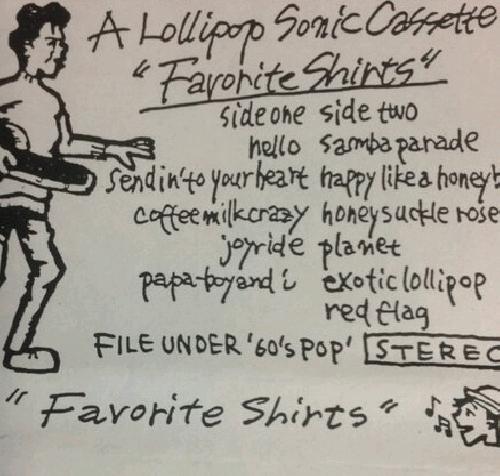 A Lollipop Sonic Cassette
"Favorite Shirts"
side one side two
hello samba parade
sendin' to your heart happy like a honey
coffeemilk crazy honeysuckle rose
joyride planet
papa-boy and i exotic lollipop
red flag
FILE UNDER '60's POP' STEREO
"Favorite Shirts"